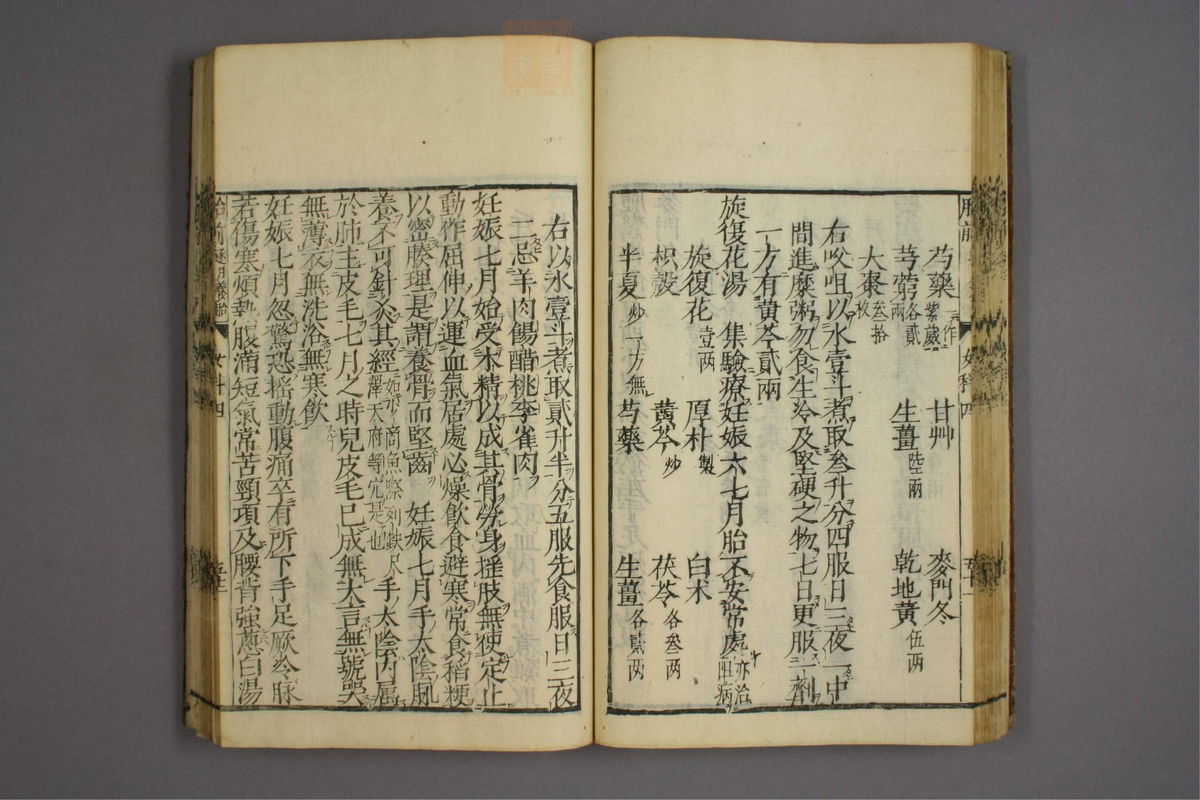 芍藥一作紫葳 甘艸 麥門冬
芎藭各貳兩 生薑陸兩 乾地黃伍兩
大棗叁拾枚
右㕮咀以水壹斗煮取叁升分四服日三夜一中
間進糜粥勿食生冷及堅硬之物七日更服一劑
一方有黃芩貳兩
旋復花湯 集驗療妊娠六七月胎不安常處亦治阻病
旋復花壹兩 厚朴製 白术
枳殼 黃芩炒 茯苓各叁兩
半夏炒一方無 芍藥 生薑各貳兩
右以水壹斗煮取貳升半分五服先食服日三夜
二忌羊肉餳醋桃李雀肉
妊娠七月始受木精以成其骨勞身搖肢無使定止
動作屈伸以運血氣居處必燥飲食避寒常食稻粳
以密腠理是謂養骨而堅齒 妊娠七月手太陰脉
養不可針灸其經如少商魚際列缺尺澤天府等穴是也 手太陰內屬
於肺主皮毛七月之時兒皮毛已成無大言無號哭
無薄衣無洗浴無寒飲
妊娠七月忽驚恐搖動腹痛卒有所下手足厥冷脉
若傷寒煩熱腹滿短氣常苦頸項及腰背強蔥白湯
胎前逐月養胎 女科四